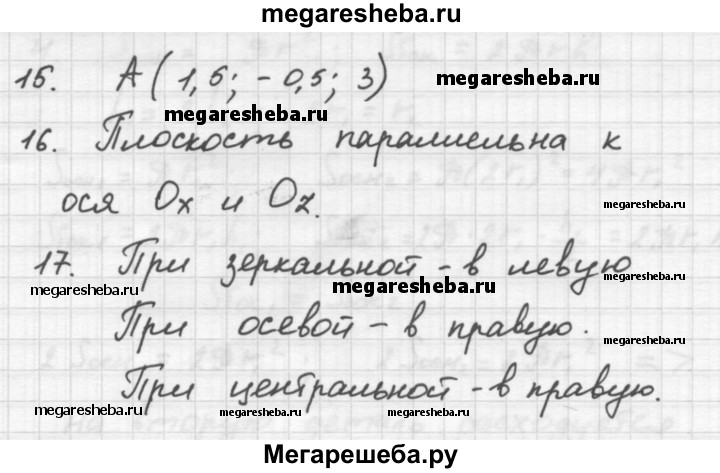 megaresheba.ru
15. А ( 1,5; - 0,5; 3)
megaresheba.ru
megaresheba.ru
16. Плоскость параллельна к
ося Ox и Oz.
megaresheba.ru
17. При зеркальной - в левую
megaresheba.ru
megaresheba.ru
При осевой - в правую.
megaresheba.ru
При центральной - в правую.
megaresheba.ru
megaresheba.ru
megaresheba.ru
Мегарешеба.ру